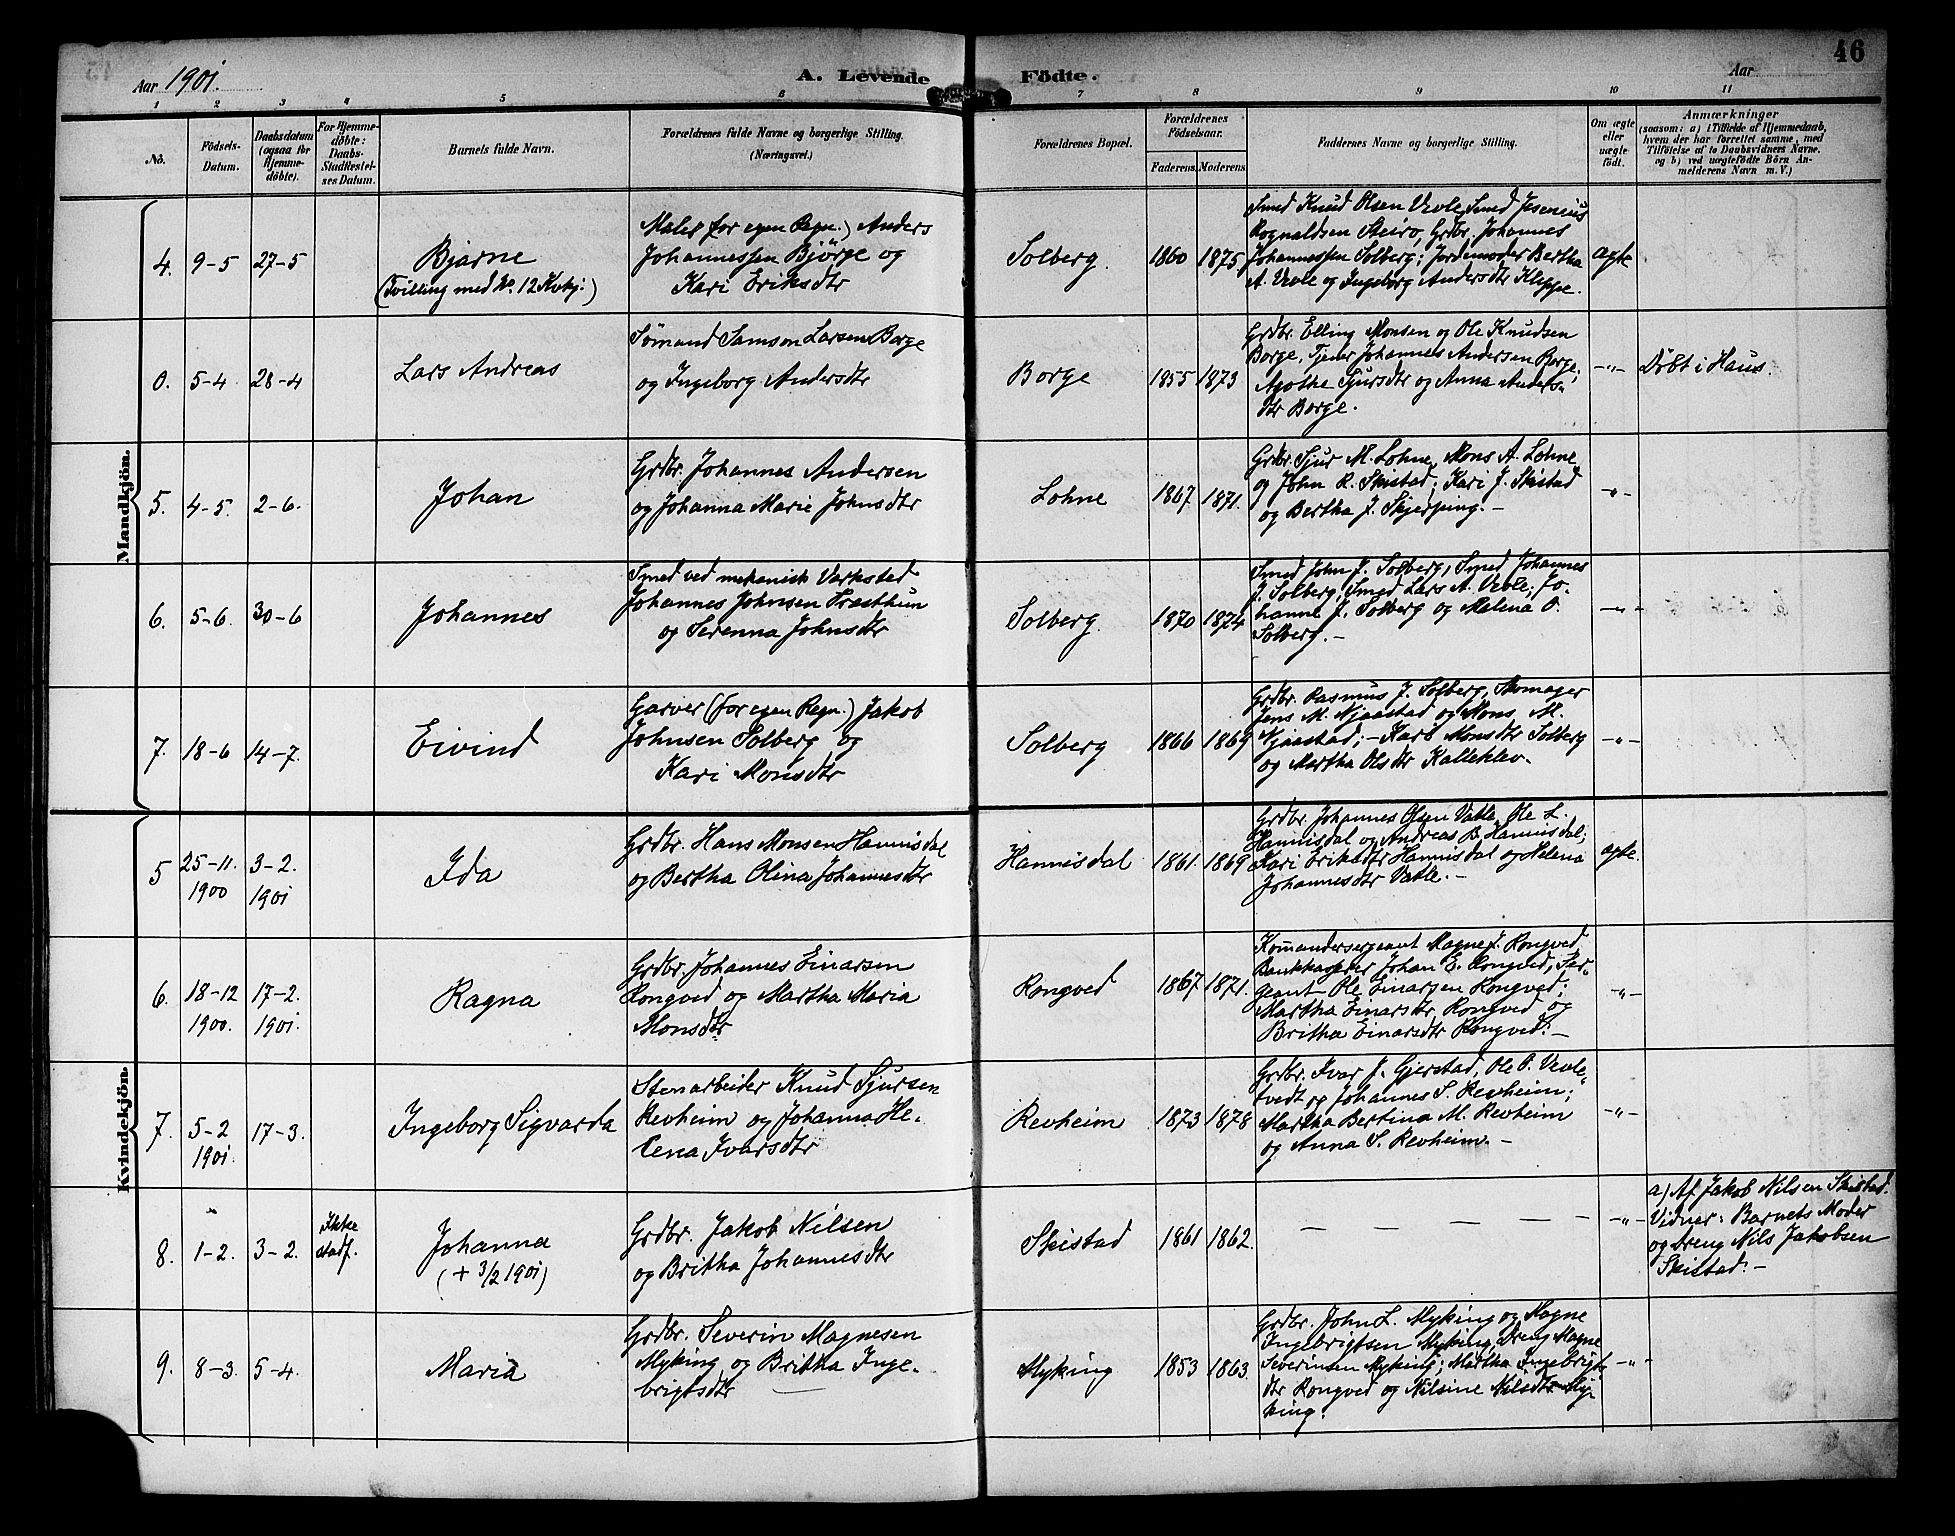 Aar 1901.
A. Levende Födte.
Aar
46
1 2 3 4 5 6 7 8 9 10 11
No.
Födsels-Datum.
Daabsdatum (ogsaa for Hjemme-döbte).
For Hjemme-döbte: Daabs-Stadfæstel-ses Datum.
Barnets fulde Navn.
Forældrenes fulde Navne og borgerlige Stilling. (Næringsvei.)
Forældrenes Bopæl.
Forældrenes Födselsaar.
Faderens. Moderens
Faddernes Navne og borgerlige Stilling.
Om ægte eller uægte födt.
Anmærkninger
(saasom: a) i Tilfælde af Hjemmedaab, hvem der har forrettet samme, med Tilföielse af to Daabsvidners Navne. og b) ved uægtefödte Börn An-melderens Navn m. V.)
Mandkjön.
4. 9-5 27-5
Bjarne
(Tvilling med No. 12 Kvkj.)
Maler (for egen Regn.) Anders
Johannessen Bjørge og
Kari Eriksdtr
Solberg. 1860 1875
Smed Knud Olsen Vevle, Smed Jesenius
Rognaldsen Steiro, Grdbr. Johannes
Johannessen Solberg; Jordemoder Bertha
A. Vevle og Ingeborg Andersdtr Kleppe.
ægte
0. 5-4. 28-4
Lars Andreas
Sømand Samson Larsen Borge
og Ingeborg Andersdtr
Borge 1855 1873
Grdbr. Elling Monsen og Ole Knudsen
Borge, Tjener Johannes Andersen Borge;
Agothe Sjursdtr og Anna Anders-
dtr Borge.
-"-
Døbt i Haus.
5. 4-5. 2-6.
Johan
Grdbr. Johannes Andersen
og Johanna Marie Johnsdtr
Lohne 1867. 1871.
Grdbr. Sjur M. Lohne, Mons A. Lohne
og John R. Skistad; Kari J. Skistad
og Bertha J. Skjerping. -
-"-
6. 5-6. 30-6
Johannes
Smed ved mekanisk Værksted
Johannes Johnsen Træsthun
og Serenna Johnsdtr
Solberg. 1870 1874
Smed John J. Solberg, Smed Johannes
J. Solberg, Smed Lars A. Vevle; Jo-
hanne J. Solberg og Malena O.
Solberg. -
-"-
7. 18-6 14-7.
Eivind
Garver (for egen Regn.) Jakob
Johnsen Solberg og
Kari Monsdtr
Solberg 1866 1869
Grdbr. Rasmus J. Solberg, Skomager
Jens M. Njaastad og Mons M.
Njaastad; - Kari Monsdtr Solberg
og Martha Olsdtr Kalleklev.
-"-
Kvindekjön.
5 25-11. 3-2.
1900 1901
Ida
Grdbr. Hans Monsen Hannisdal
og Bertha Olina Johannesdtr
Hannisdal 1861. 1869
Grdbr. Johannes Olsen Vatle, Ole L.
Hannisdal og Andreas B. Hannisdal;
Kari Eriksdtr Hannisdal og Helena
Johannesdtr Vatle. -
ægte.
6. 18-12 17-2.
1900. 1901.
Ragna
Grdbr. Johannes Einarsen
Rongved og Martha Maria
Monsdtr
Rongved 1867 1871.
Komandersergeant Magne J. Rongved,
Bankkasserer Johan E. Rongved, Ser-
geant Ole Einarsen Rongved;
Martha Einarsdtr Rongved og
Britha Einarsdtr Rongved. -
-"-
7. 5-2 17-3.
1901.
Ingeborg Sigvarda
Stenarbeider Knud Sjursen
Revheim og Johanna He-
lena Ivarsdtr
Revheim 1873 1878
Grdbr. Ivar J. Gjerstad, Ole P. Vevle-
tvedt og Johannes S. Revheim;
Martha Bertina M. Revheim
og Anna S. Revheim. -
-"-
8. 1-2. 3-2.
Ikke
stadf.
Johanna
(+ 3/2 1901)
Grdbr. Jakob Nilsen
og Britha Johannesdtr
Skistad 1861 1862.
- - - - -
-"-
a) Af Jakob Nilsen Skistad.
Vidner: Barnets Moder
og Dreng Nils Jakobsen
Skistad. -
9. 8-3. 5-4.
Maria
Grdbr. Severin Magnesen
Myking og Britha Inge-
brigtsdtr
Myking 1853 1863.
Grdbr. John L. Myking og Magne
Ingebrigtsen Myking, Dreng Magne
Severinsen Myking; Martha Ingebrigts-
dtr Rongved og Nilsine Nilsdtr My-
king.
-"-